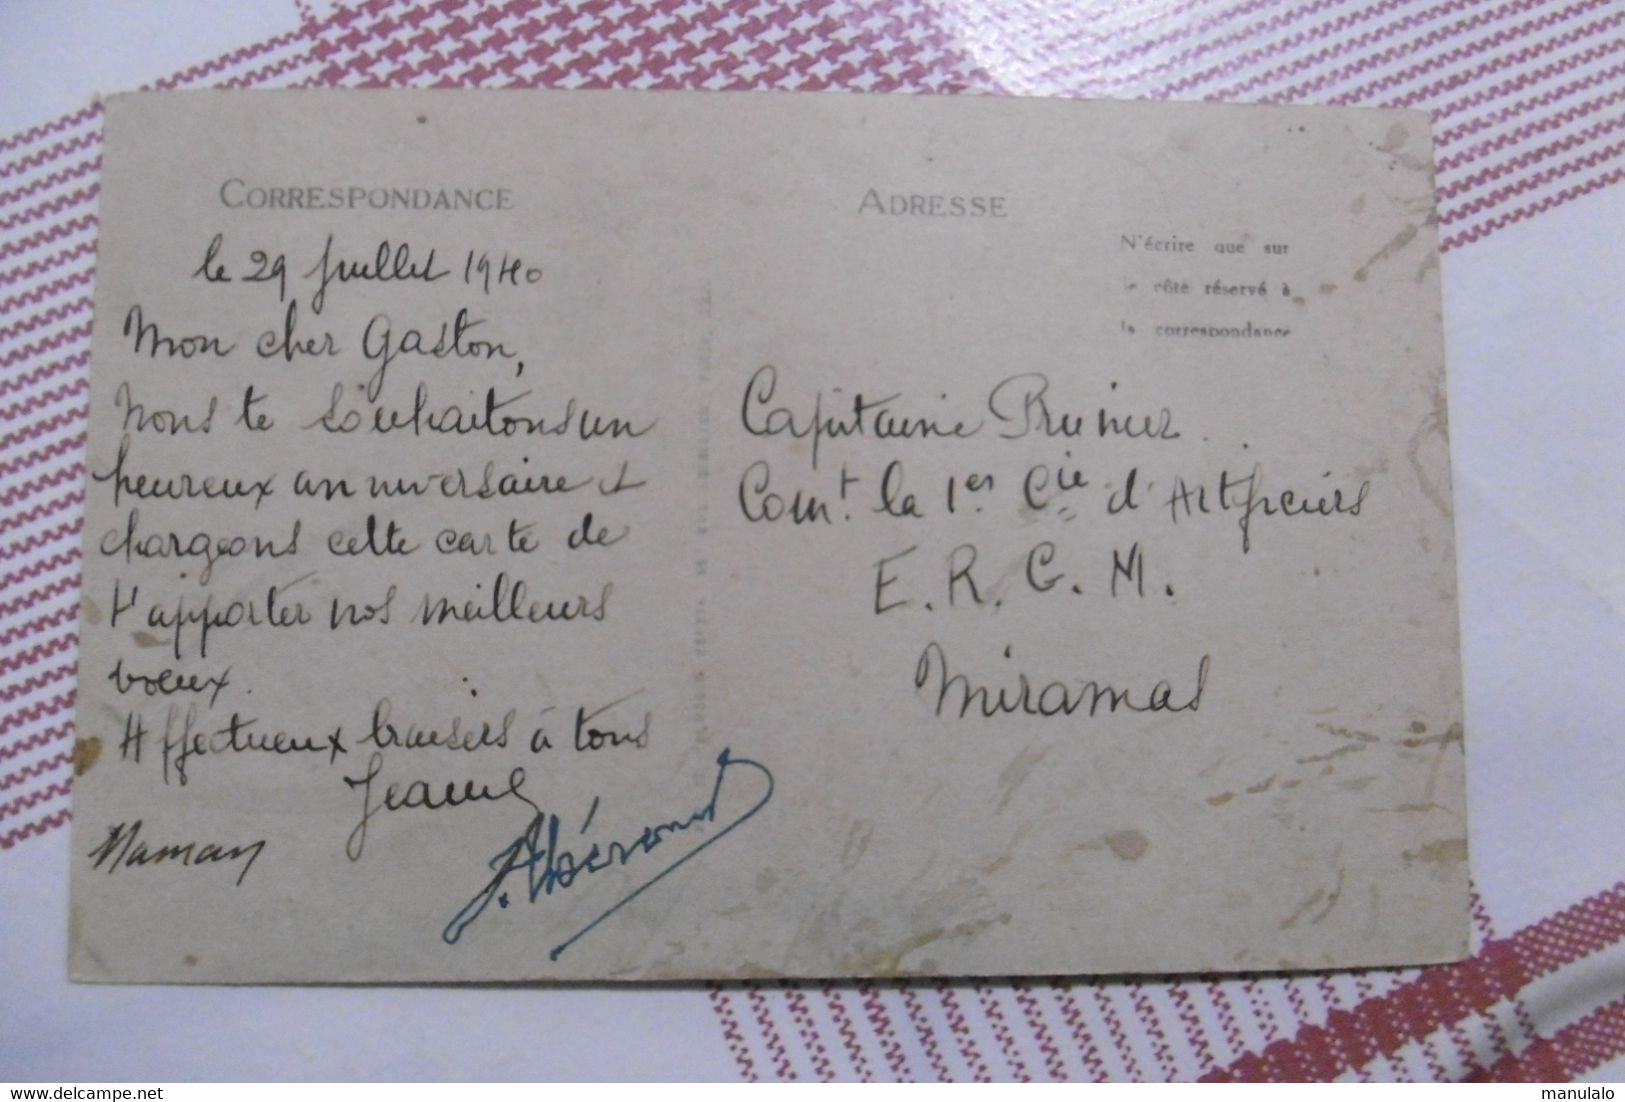 CORRESPONDANCE
le 29 Juillet 1940
Mon cher Gaston,
Nous te souhaitons un
heureux anniversaire et
chargeons cette carte de
t'apporter nos meilleurs
voeux.
Affectueux baisers à tous
Jeanne
Maman
ADRESSE
N'écrire que sur
le côté réservé à
la correspondance
Capitaine
Comt. la 1er Cie d'Artificiers
E. R. G. M.
Miramas
delcampe.net
manulalo